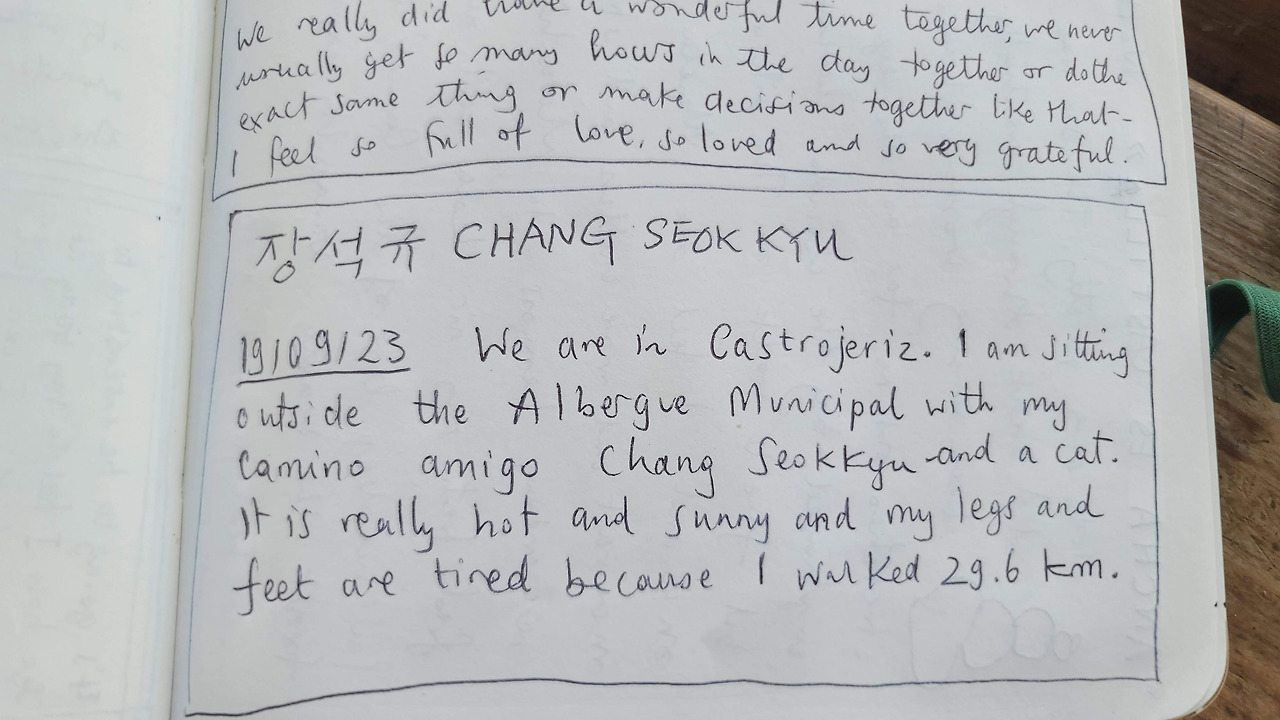 We really did have a wonderful time together, we never
usually get so many hours in the day together or do the
exact same thing or make decisions together like that-
I feel so full of love, so loved and so very grateful.
장석규 CHANG SEOK KYU
19/09/23 We are in Castrojeriz. I am sitting
outside the Albergue Municipal with my
Camino amigo Chang Seokkyu and a cat.
It is really hot and sunny and my legs and
feet are tired because I walked 29.6 km.